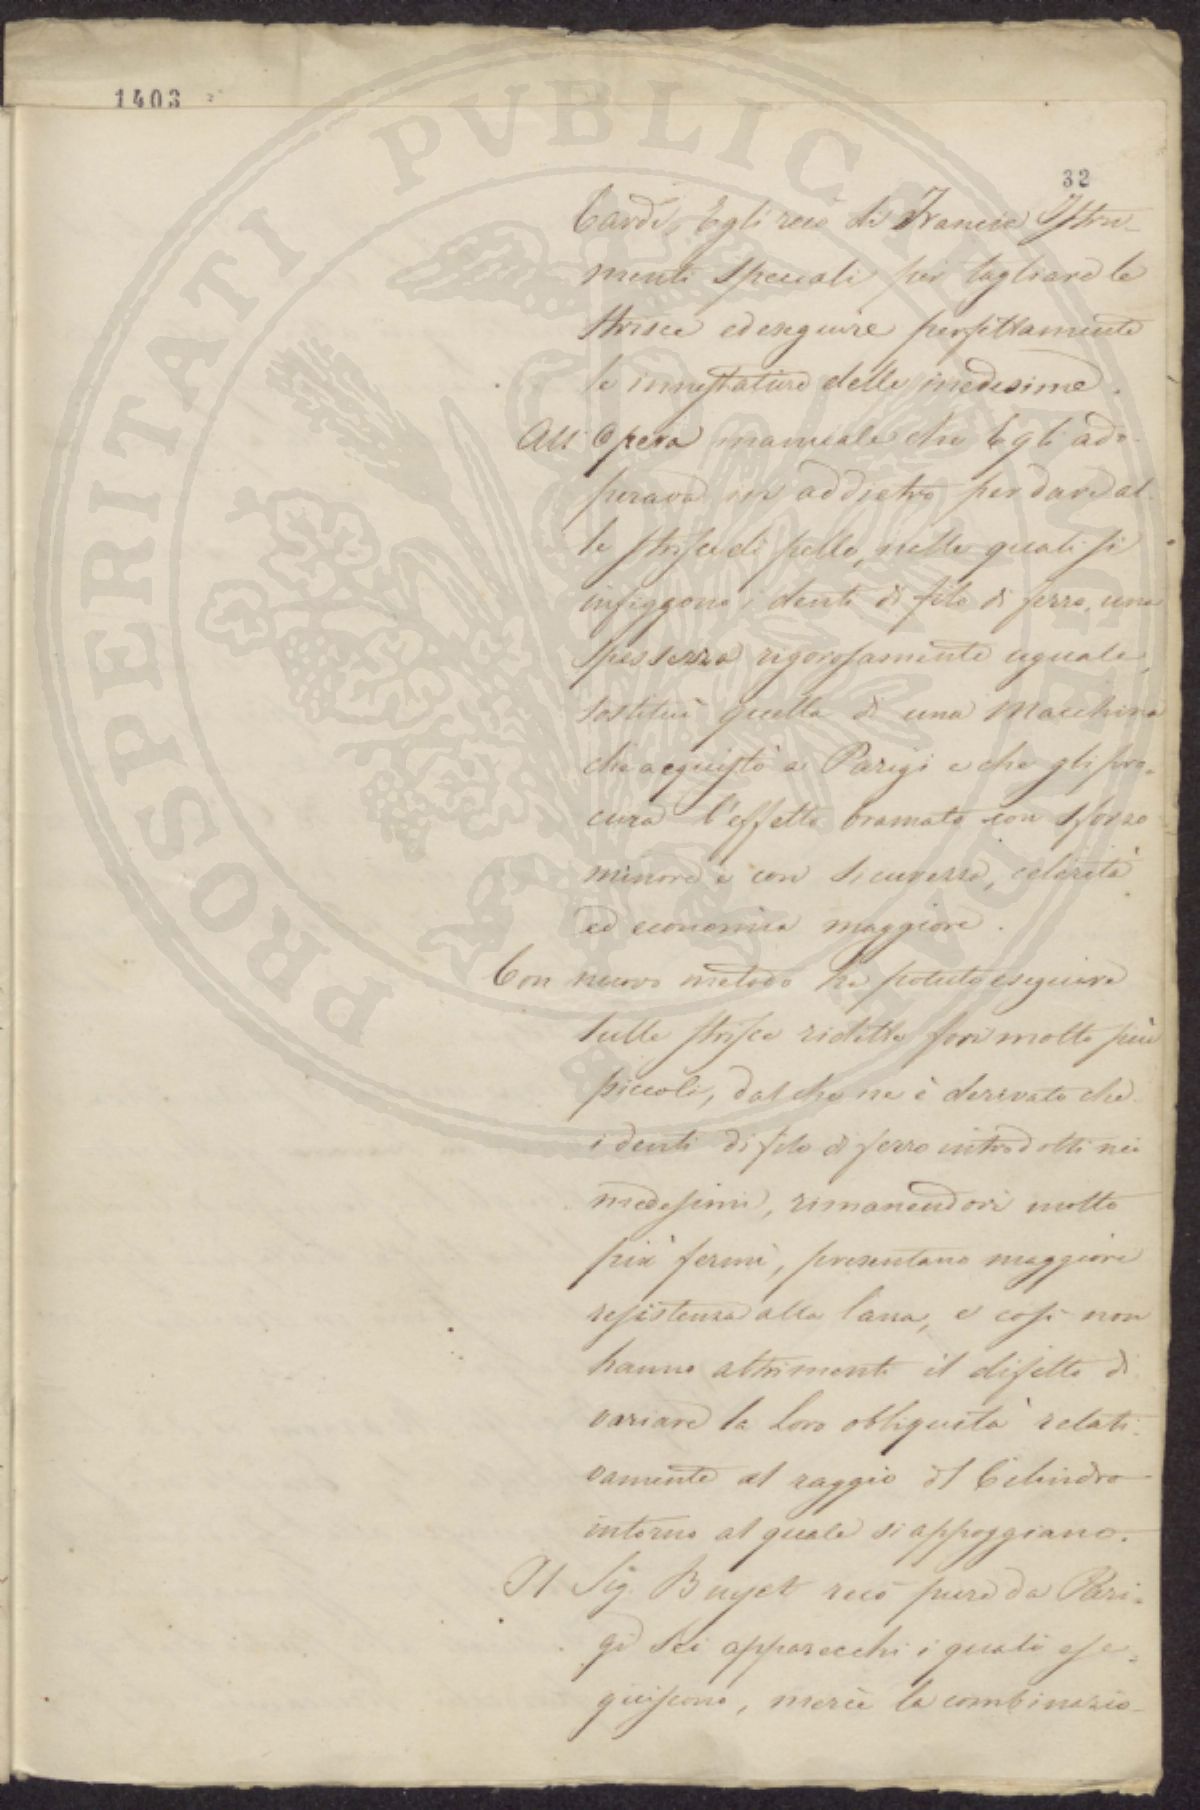 1403
32
Cardi, Egli recò di Francia Istru-
menti speciali per tagliare le
strisce ed eseguire perfettamente
le innestature delle medesime.
All'Opera manuale che Egli ado-
perava in addietro per dare al-
le strisce di pelle, nelle quali si
infiggono i denti di filo di ferro, una
spessezza rigorosamente uguale,
sostituì quella di una Macchina
che acquistò a Parigi e che gli pro-
cura l'effetto bramato con sforzo
minore e con sicurezza, celerità
ed economia maggiore.
Con nuovo metodo ha potuto eseguire
sulle strisce ridette fori molto più
piccoli, dal che ne è derivato che
i denti di filo di ferro introdotti nei
medesimi, rimanendovi molto
più fermi, presentano maggiore
resistenza alla lana, e così non
hanno altrimenti il difetto di
variare la loro obliquità relati-
vamente al raggio del Cilindro
intorno al quale si appoggiano.
Il Sig. Buyet recò pure da Pari-
gi sei apparecchi i quali ese-
guiscono, mercè la combinazio-
PROSPERITATI PVBLICAE AVGENDAE